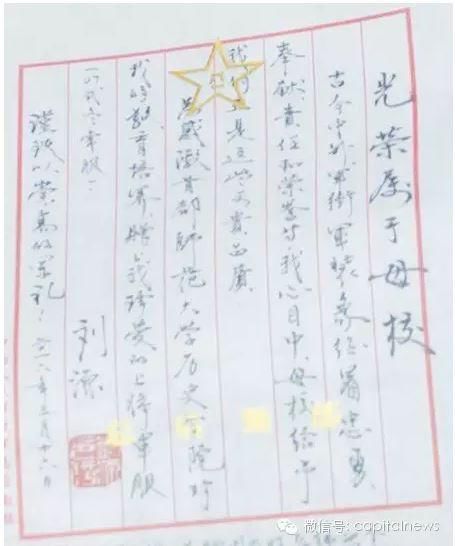 光荣属于母校
古今中外军衔军装象征着忠勇、
奉献、责任和荣誉 我心目中，母校给予
我们正是这些 贵品质
为感激首都师范大学历史学院对
我的教育培养，赠上我珍爱的上将军服
式 军服）
谨致以崇高的军礼！
刘源
二〇一六年三月十六日
微信号: capitalnews